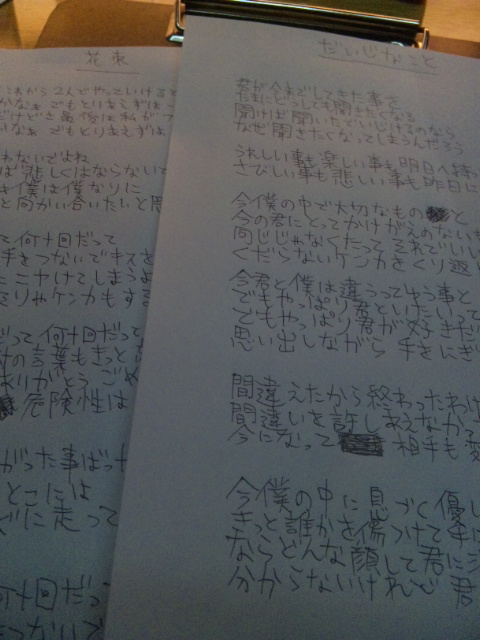 花束
これから2人でやっていけると
かなぁ でもとりあえずは
だけどさ最後は私がフ
かなぁ でもとりあえずは
わないでよね
ば悲しくはならないで
き僕は僕なりに
と向かい合いたいと思
て何十回だって
手をつないでキスを
ニヤけてしまうよ
さりゃケンカもする
だって何十回だって
の言葉もきっと
ありがとう ごめ
危険性は
がった事ばった
とこには
ぐに走って
何十回だっ
つないで
だいじなこと
君が今までしてきた事を
たまにどうしても聞きたくなる
聞けば聞いたでいじけるのなら
なぜ聞きたくなってしまうんだろう
うれしい事も楽しい事も明日へ続
さびしい事も悲しい事も昨日に
今僕の中で大切なもの と
今の君にとってかけがえのないも
同じじゃなくたって それでいい
くだらないケンカをくり返し
今君と僕は違うってゆう事と
でもやっぱり君といたいって
でもやっぱり君が好きだ
思い出しながら 手をにぎ
間違えたから終わったわけ
間違いを許しあえなかっ
今になって 相手も変
今僕の中に息づく優し
きっと誰かを傷つけて手に
ならどんな顔して君に
分からないけれど 君